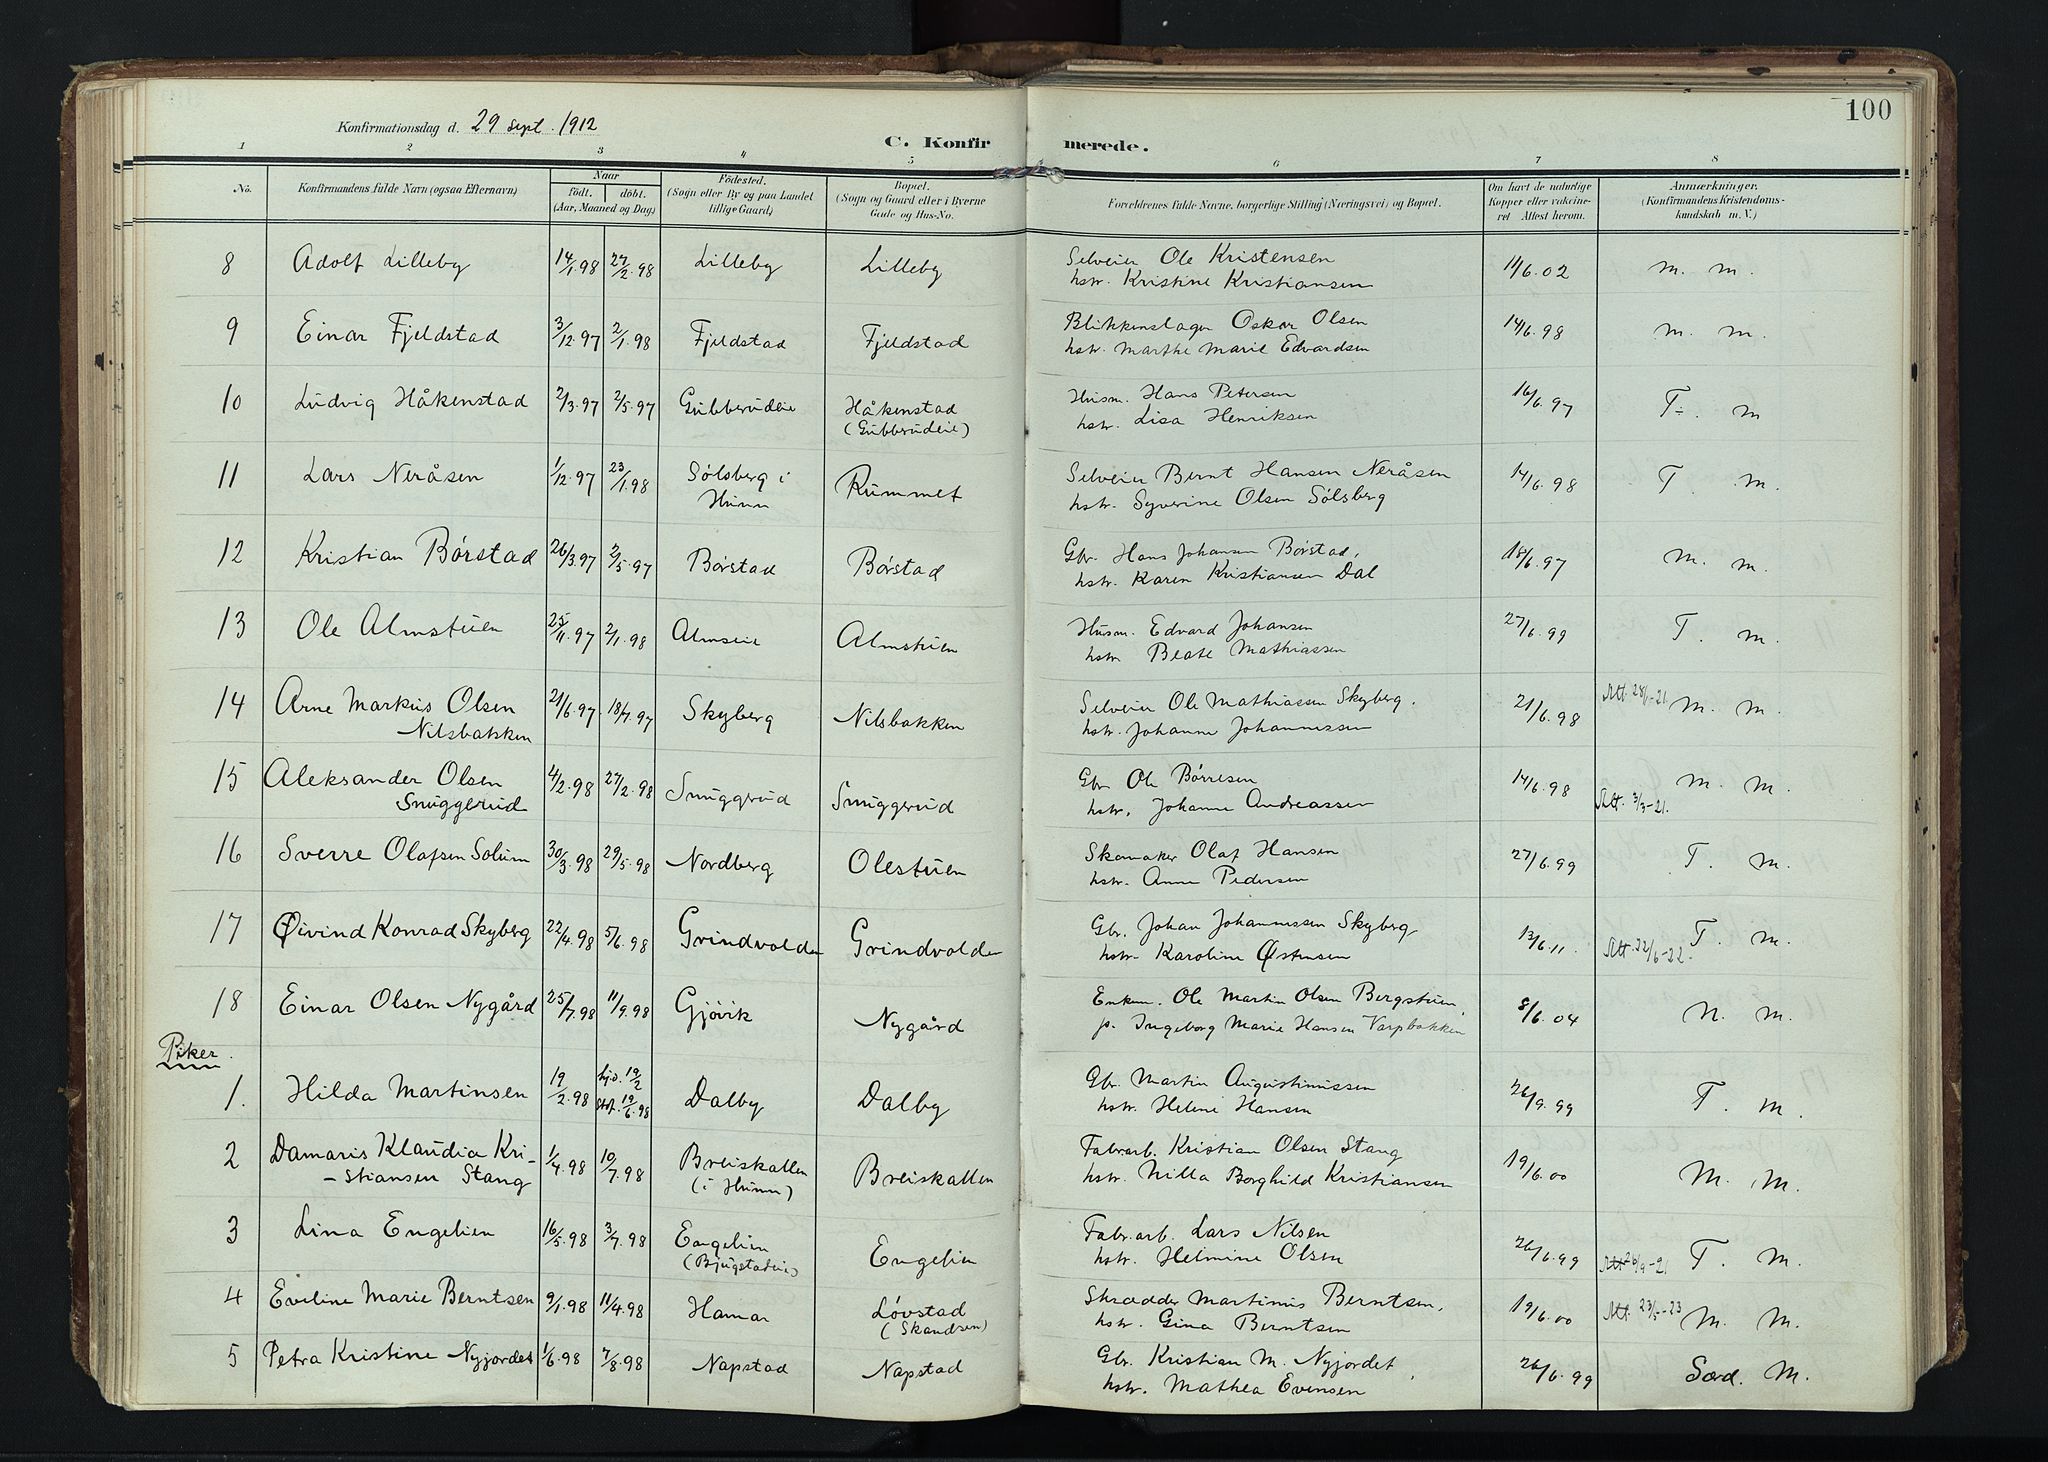 100
Konfirmationsdag d. 29 sept. 1912
C. Konfirmerede.
1 2 3 4 5 6 7 8
No. Konfirmandens fulde Navn (ogsaa Efternavn) Naar födt. döbt. (Aar, Maaned og Dag) Födested. (Sogn eller By og paa Landet tillige Gaard) Bopæl. (Sogn og Gaard eller i Byerne Gade og Hus-No. Forældrenes fulde Navne, borgerlige Stilling (Næringsvei) og Bopæl. Om havt de naturlige Kopper eller vakcineret Attest herom. Anmærkninger. (Konfirmandens Kristendomskundskab m. V.)
8 Adolf Lilleby 14/1.98 27/2.98 Lilleby Lilleby Selveier Ole Kristensen 11/6.02 m. m.
hstr. Kristine Kristiansen
9 Einar Fjeldstad 3/12.97 2/1.98 Fjeldstad Fjeldstad Blikkenslager Oskar Olsen 14/6.98 m. m.
hstr. Marthe Marie Edvardsen
10 Ludvig Håkenstad 2/3.97 2/5.97 Gubberudeie Håkenstad Husm. Hans Petersen 16/6.97 T÷. m
(Gubberudeie) hstr. Lisa Henriksen
11 Lars Neråsen 1/12.97 23/1.98 Sølsberg i Rummet Selveier Bernt Hansen Neråsen 14/6.98 T. m.
Hunn hstr. Syverine Olsen Sølsberg
12 Kristian Børstad 26/3.97 2/5.97 Børstad Børstad Gbr. Hans Johansen Børstad, 18/6.97 m. m.
hstr. Karen Kristiansen Dal
13 Ole Almstuen 25/11.97 2/1.98 Almseie Almstuen Husm. Edvard Johansen 27/6.99 T. m.
hstr Beate Mathiassen
14 Arne Markus Olsen 21/6.97 18/7.97 Skyberg Nilsbakken Selveier Ole Mathiassen Skyberg, 21/6.98 Att. 28/1-21 M. M.
Nilsbakken hstr. Johanne Johannessen
15 Aleksander Olsen 4/2.98 27/2.98 Snuggerud Snuggerud Gbr Ole Børresen 14/6.98 M. M.
Snuggerud hstr. Johanne Andreassen Att. 3/3-21.
16 Sverre Olafsen Solum 30/3.98 29/5.98 Nordberg Olestuen Skomaker Olaf Hansen 27/6.99 T. m.
hstr. Anne Pedersen
17 Øivind Konrad Skyberg 22/4.98 5/6.98 Grindvolden Grindvolden Gbr. Johan Johannessen Skyberg 13/6.11. T. m.
hstr. Karoline Østensen Att. 22/6-22.
18 Einar Olsen Nygård 25/7.98 11/9.98 Gjøvik Nygård Enkem. Ole Martin Olsen Bergstuen, 8/6.04 N. m.
p. Ingeborg Marie Hansen Varpbakken
Piker.
1. Hilda Martinsen 19/2.98 hjd. 19/2 stf. 19/6.98 Dalby Dalby Gbr. Martin Augustinussen 26/9.99 T. M.
hstr. Helene Hansen
2 Damaris Klaudia Kri- 1/4.98 10/7.98 Breiskallen Breiskallen Fabrarb. Kristian Olsen Stang 19/6.00 M. M.
-stiansen Stang (i Hunn) hstr. Nilla Borghild Kristiansen
3 Lina Engelien 16/5.98 3/7.98 Engelien Engelien Fabr.arb. Lars Nilsen 26/6.99 T. M.
(Bjugstadeie) hstr. Helmine Olsen Att 26/9-21
4 Eveline Marie Berntsen 9/1.98 11/4.98 Hamar Løvstad Skrædder Martinus Berntsen, 19/6.00 Att. 23/5-23 M. M.
(Skandsen) hstr. Gina Berntsen
5 Petra Kristine Nyjordet 1/6.98 7/8.98 Napstad Napstad Gbr. Kristian M. Nyjordet, 26/6.99 Særd. M.
hstr. Mathea Evensen